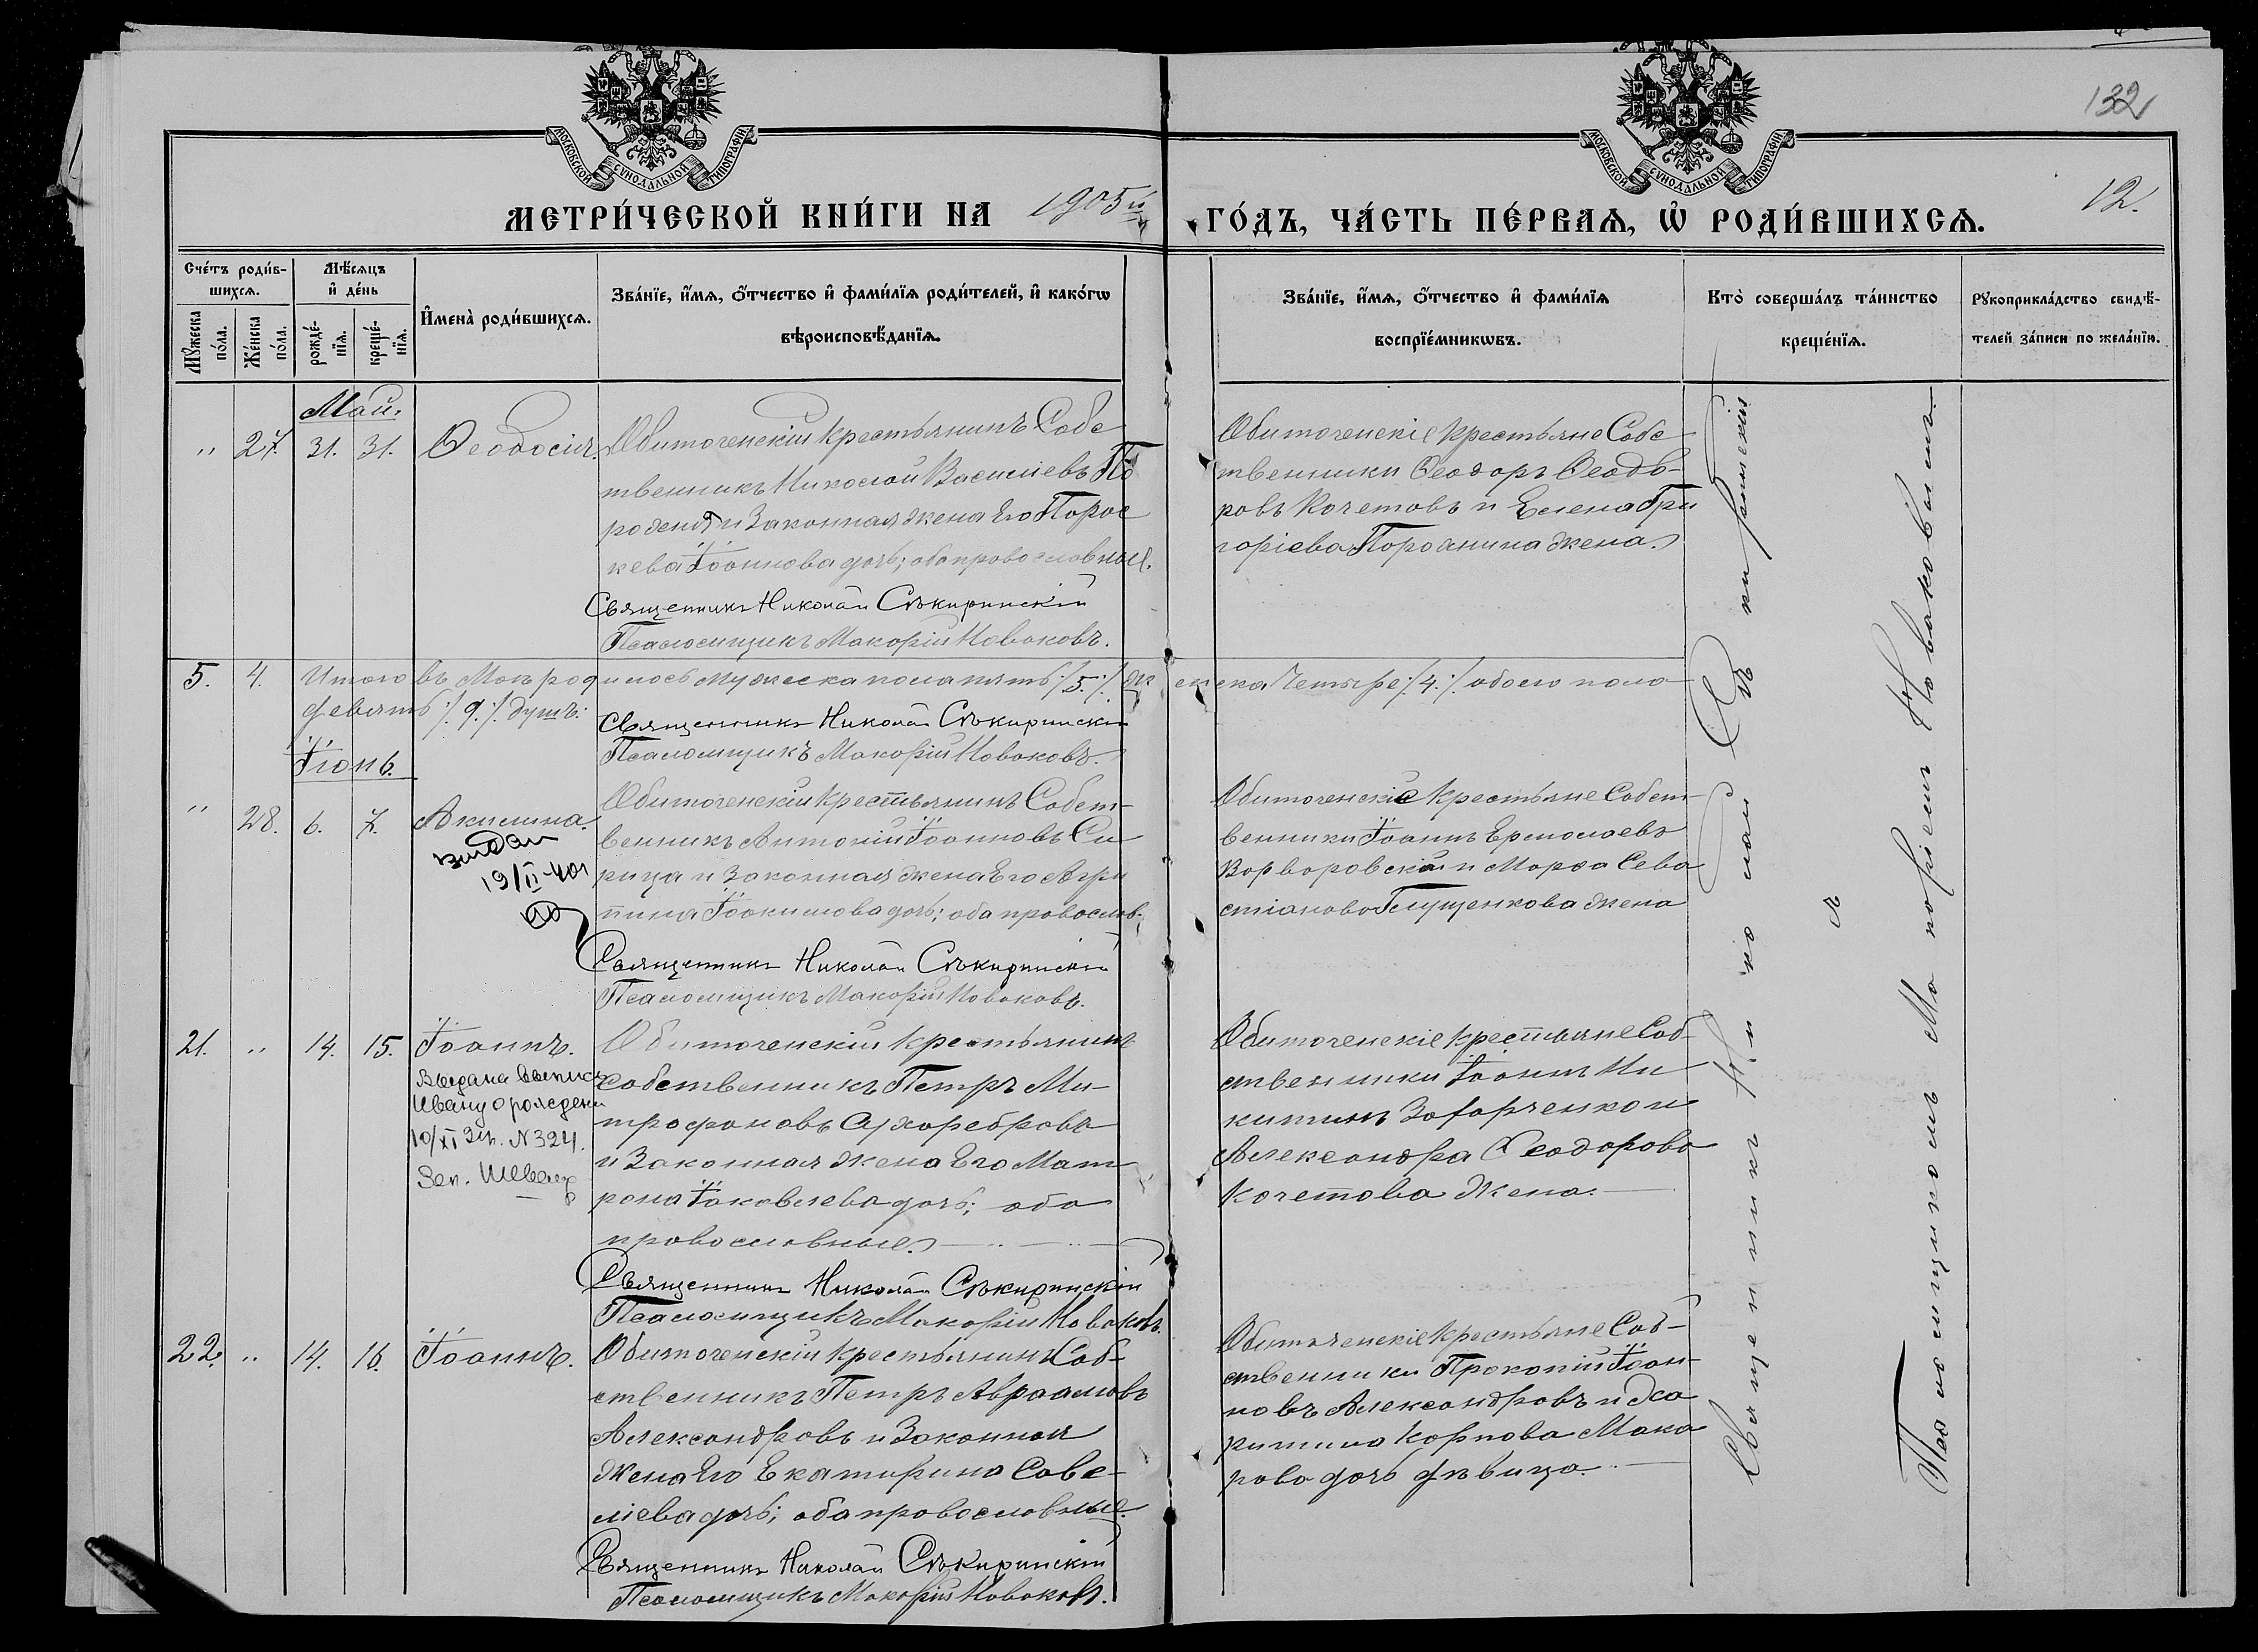 132
12.
МОСКОВСКОЙ СѴНОДАЛЬНОЙ ТИПОГРАФИИ
МОСКОВСКОЙ СѴНОДАЛЬНОЙ ТИПОГРАФИИ
МЕТРИ́ЧЕСКОЙ КНИ́ГИ НА 1905й ГО́ДЪ, ЧА́СТЬ ПЕ́РВАѦ, Ѡ҆ РОДИ́ВШИХСѦ.
Сче́тъ роди́в-
шихсѧ.
Мꙋ́жеска по́ла.
Же́нска по́ла.
Мѣ́сѧцъ
и҆ де́нь
рожде́-
нїѧ.
креще́-
нїѧ.
И҆мена̀ роди́вшихсѧ.
Зва́нїе, и҆́мѧ, ѻ҆́тчество и҆ фами́лїѧ роди́телей, и҆ како́гѡ
вѣроисповѣ́данїѧ.
Зва́нїе, и҆́мѧ, ѻ҆́тчество и҆ фами́лїѧ
воспрїе́мникѡвъ.
Кто̀ соверша́лъ та́инство
креще́нїѧ.
Рꙋкоприкла́дство свидѣ́-
телей за́писи по жела́нїю.
Май.
" 27. 31. 31. Ѳеодосія.
Обиточенскій крестьянинъ Собс
твенникъ Николай Василіевъ По
и Законная жена Его Парас
кева Іоаннова дочь; оба православные.
Священникъ Николай Сѣкиринскій
Псаломщикъ Макарій Новаковъ.
Обиточенскіе крестьяне Собс
твенники Ѳеодоръ Ѳеодо-
ровъ Кочетовъ и Елена Гри
горіева Поросянина жена.
5. 4. Итого въ Маѣ родилось мужеска пола пять /:5:/ женска Четыре /:4:/ обоего пола
девять /:9:/ душъ.
Священникъ Николай Сѣкиринскій
Псаломщикъ Макарій Новаковъ.
Іюнь.
" 28. 6. 7. Акилина.
19/II-401
Обиточенскій крестьянинъ Собст-
венникъ Антоній Іоанновъ Си
рица и Законная жена Его Агри
пина Іоакимова дочь; оба православ.
Священникъ Николай Сѣкиринскій
Псаломщикъ Макарій Новаковъ.
Обиточенскіе крестьяне Собст-
венники Іоаннъ Ермолаевъ
Варваровскій и Марѳа Сева
стіанова Глущенкова жена
21. " 14. 15. Іоаннъ.
Выдана выпись
Ивану о рожден
10/XI 32г. N 324.
Обиточенскій крестьянинъ
собственникъ Петръ Ми-
трофановъ Сухоребровъ
и Законная жена Его Мат
рона Іаковлева дочь; оба
православные.
Священникъ Николай Сѣкиринскій
Псаломщикъ Макарій Новаковъ.
Обиточенскіе крестьяне Соб-
ственники Іоаннъ Ни
китинъ Захарченко и
Александра Ѳеодорова
Кочетова жена.
22. " 14. 16. Іоаннъ.
Обиточенскій крестьянинъ Соб-
ственникъ Петръ Авраамовъ
Александровъ и Законная
жена Его Екатирина Саве-
ліева дочь; оба православные.
Священникъ Николай Сѣкиринскій
Псаломщикъ Макарій Новаковъ.
Обиточенскіе крестьяне Соб-
ственники Прокопій Іоан-
новъ Александровъ и Ха
ритина Карпова Мака
рова дочь дѣвица.
Священникъ Николай Сѣкиринскій
съ
Псаломщикомъ Макаріемъ Новаковымъ.